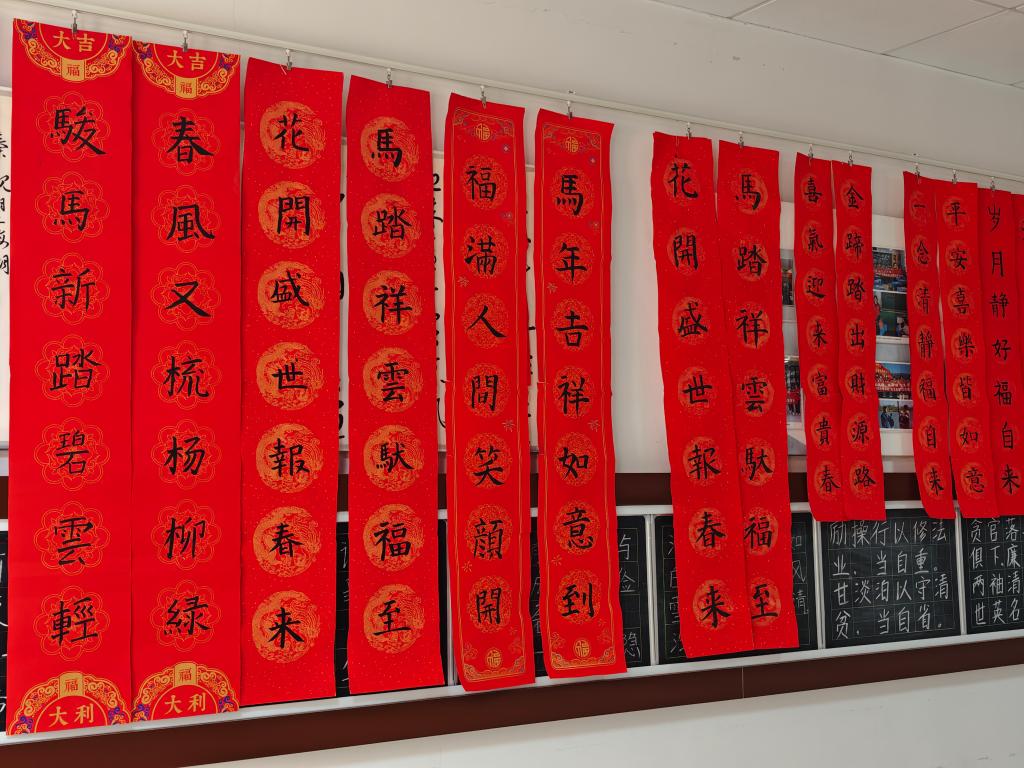 大吉
福
駿馬新踏碧雲輕
福
大利
大吉
福
春風又梳杨柳緑
福
大利
花開盛世報春来
馬踏祥雲馱福至
福
福滿人間笑顔開
福
福
馬年吉祥如意到
福
花開盛世報春来
馬踏祥雲馱福至
喜氣迎来富貴春
金蹄踏出財源路
一念清静福自来
平安喜樂皆如意
岁月静好福自来
励操行以修法
业，当自重。
甘淡泊以守清
贫，当自省。
贪官落
俱下廉
两袖清
世英名